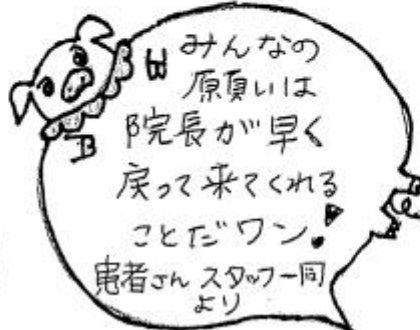 みんなの
願いは
院長が早く
戻って来てくれる
ことだワン!
患者さん スタッフ一同
より